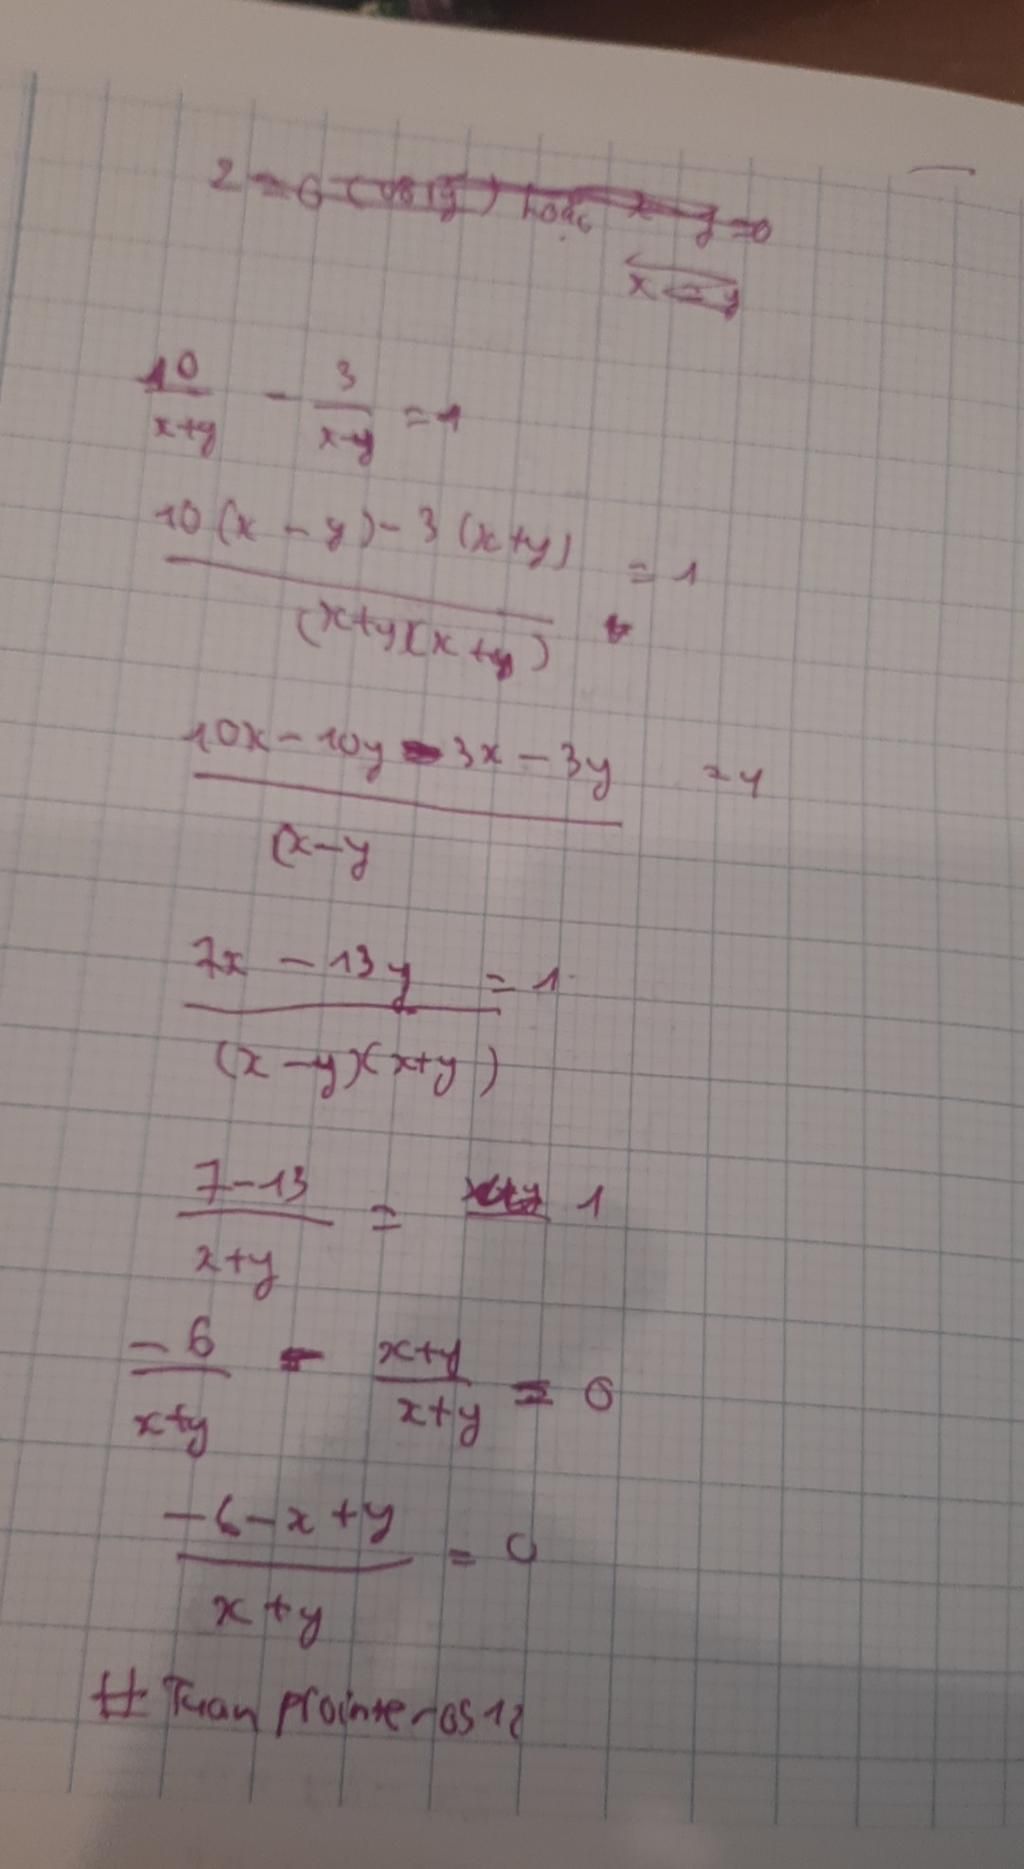 10/(x+y) - 3/(x-y) = 1
10(x - y) - 3(x+y) / (x+y)(x+y) = 1
10x - 10y - 3x - 3y / (x-y = 1
7x - 13y / (x-y)(x+y) = 1
7-13 / x+y = 1
-6 / x+y - x+y / x+y = 0
-6-x+y / x+y = 0
# Tuan